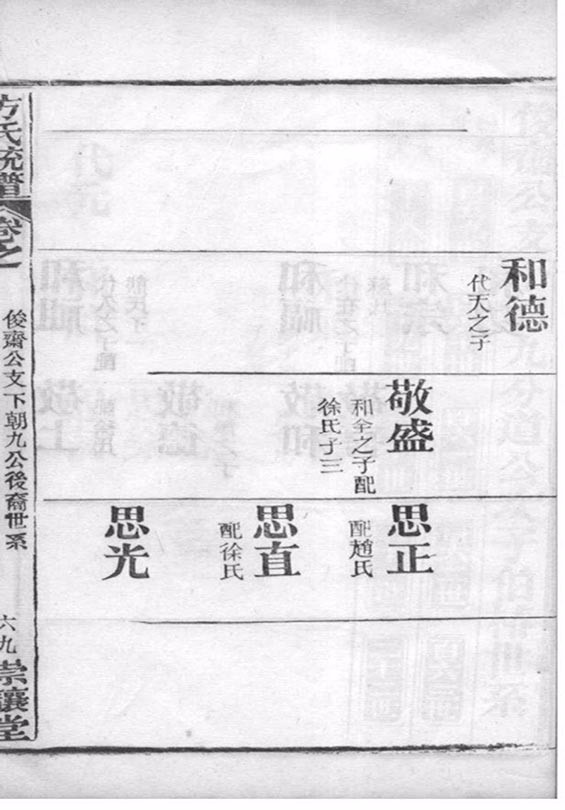 和德
代天之子
敬盛
和全之子配
徐氏子三
思正
配趙氏
思直
配徐氏
思光
方氏統譜
卷之一
俊齋公支下朝九公後裔世系
六九
崇讓堂